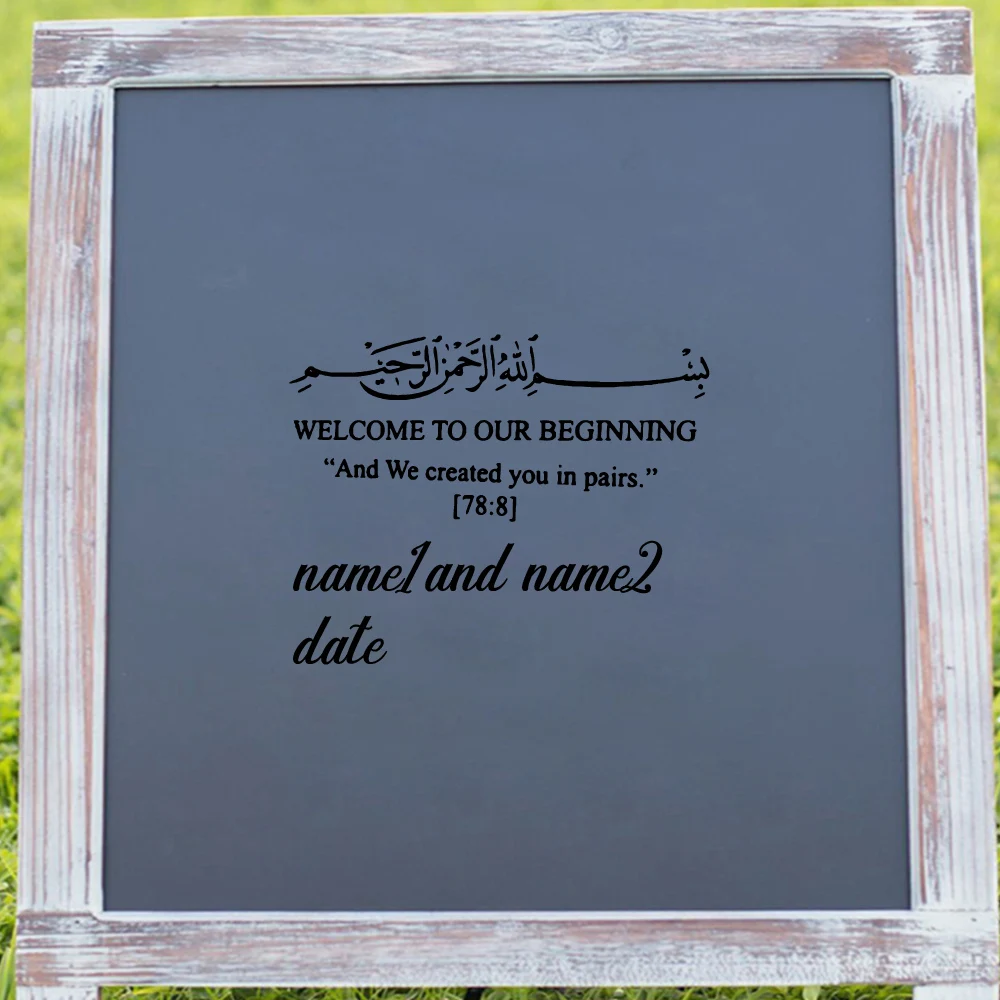 بِسْمِ اللهِ الرَّحْمٰنِ الرَّحِيْمِ
WELCOME TO OUR BEGINNING
“And We created you in pairs.”
[78:8]
name1 and name2
date